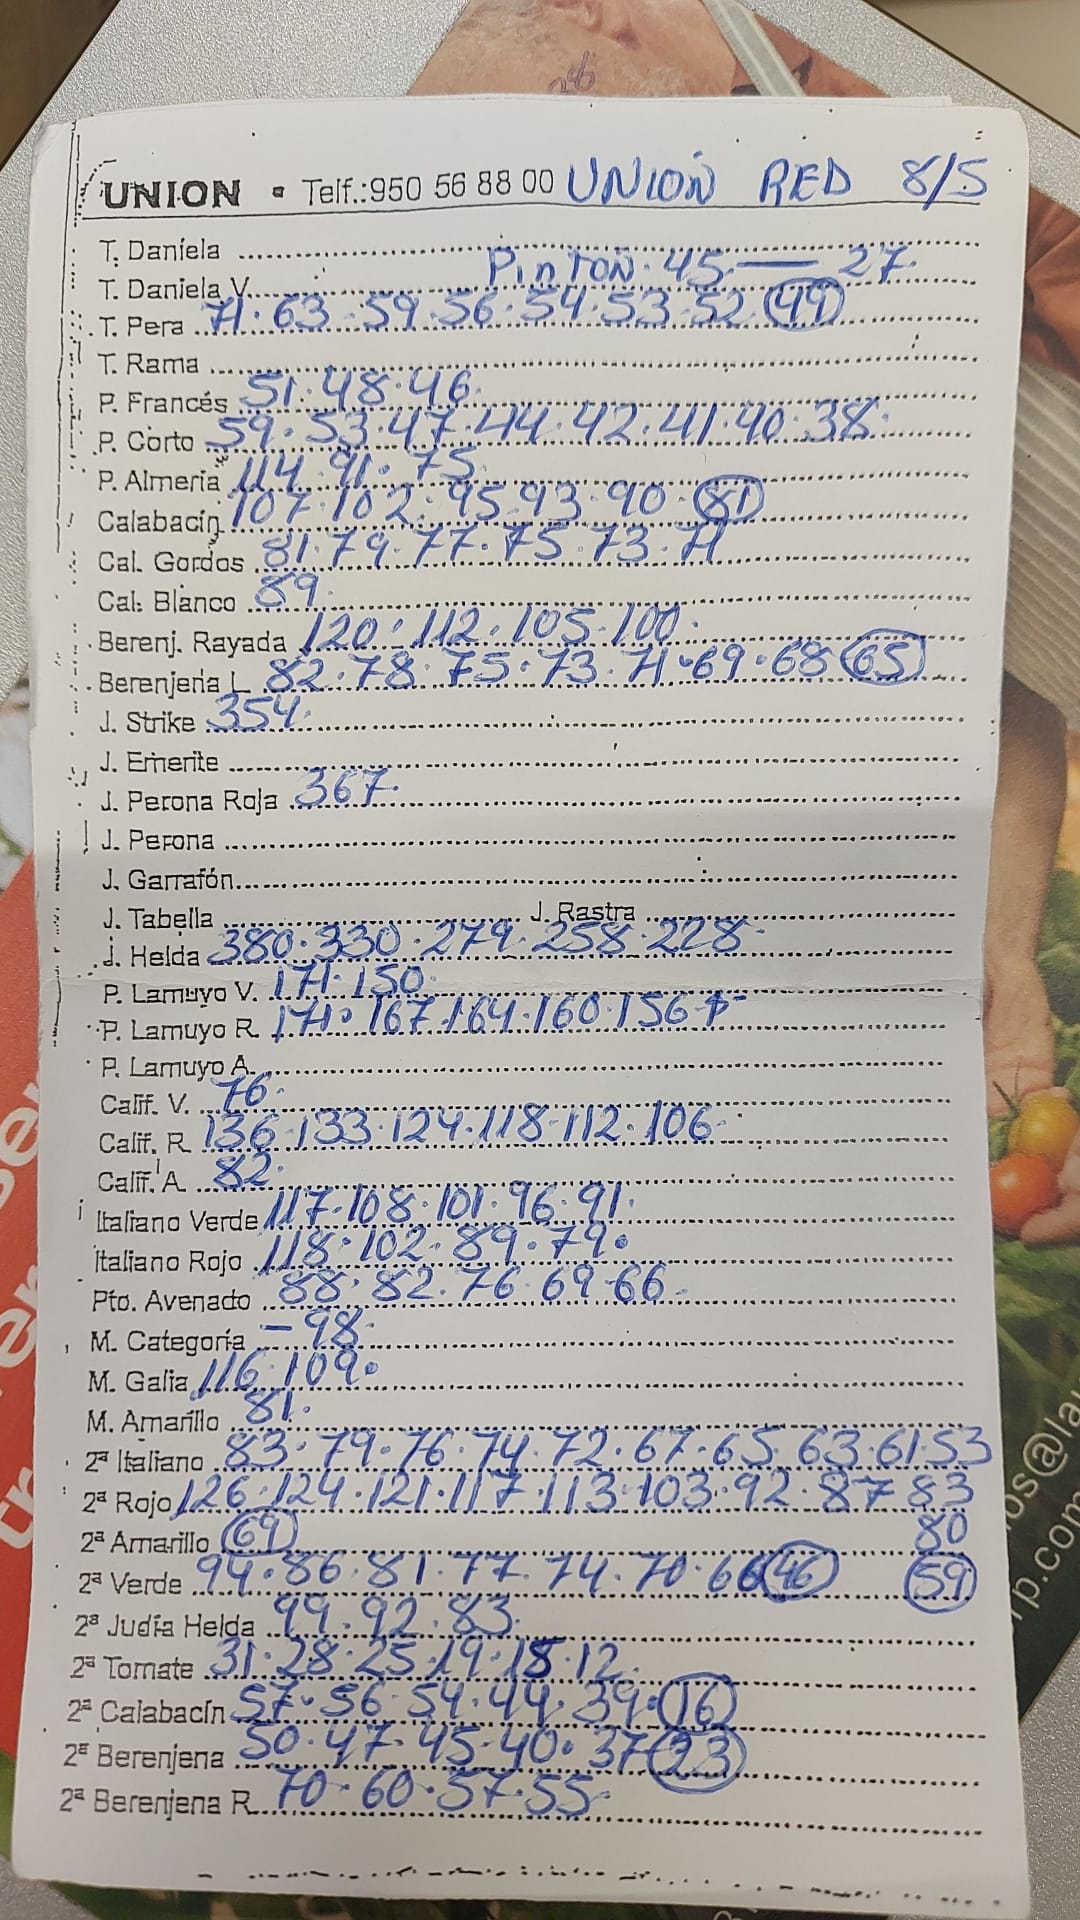 UNION • Telf.:950 56 88 00 UNION RED 8/5
T. Daniela
T. Daniela V. PinTON. 45 — 27
T. Pera 71. 63. 59. 56. 54. 53. 52. 49
T. Rama
P. Francés 51. 48. 46.
P. Corto 59. 53. 47. 44. 42. 41. 40. 38.
P. Almeria 114. 91. 75.
Calabacín 107. 102. 95. 93. 90. 81
Cal. Gordos 81. 79. 77. 75. 73. 71
Cal. Blanco 89.
Berenj. Rayada 120. 112. 105. 100.
Berenjena L 82. 78. 75. 73. 71. 69. 68 65
J. Strike 354.
J. Emerite
J. Perona Roja 367.
J. Perona
J. Garrafón
J. Tabella J. Rastra
J. Helda 380. 330. 279. 258. 228.
P. Lamuyo V. 171. 150.
P. Lamuyo R. 171. 167. 164. 160. 156
P. Lamuyo A.
Calif. V. 76.
Calif. R 136. 133. 124. 118. 112. 106.
Calif. A 82.
Italiano Verde 117. 108. 101. 96. 91.
Italiano Rojo 118. 102. 89. 79.
Pto. Avenado 88. 82. 76. 69. 66.
M. Categoría - 98.
M. Galia 116. 109.
M. Amarillo 81.
2ª Italiano 83. 79. 76. 74. 72. 67. 65. 63. 61. 53
2ª Rojo 126. 124. 121. 117. 113. 103. 92. 87 83
2ª Amarillo 69 80
2ª Verde 94. 86. 81. 77. 74. 70. 66 46 59
2ª Judía Helda 99. 92. 83.
2ª Tomate 31. 28. 25. 19. 18. 12.
2ª Calabacín 57. 56. 54. 44. 39. 16
2ª Berenjena 50. 47. 45. 40. 37 23
2ª Berenjena R. 70. 60. 57. 55.